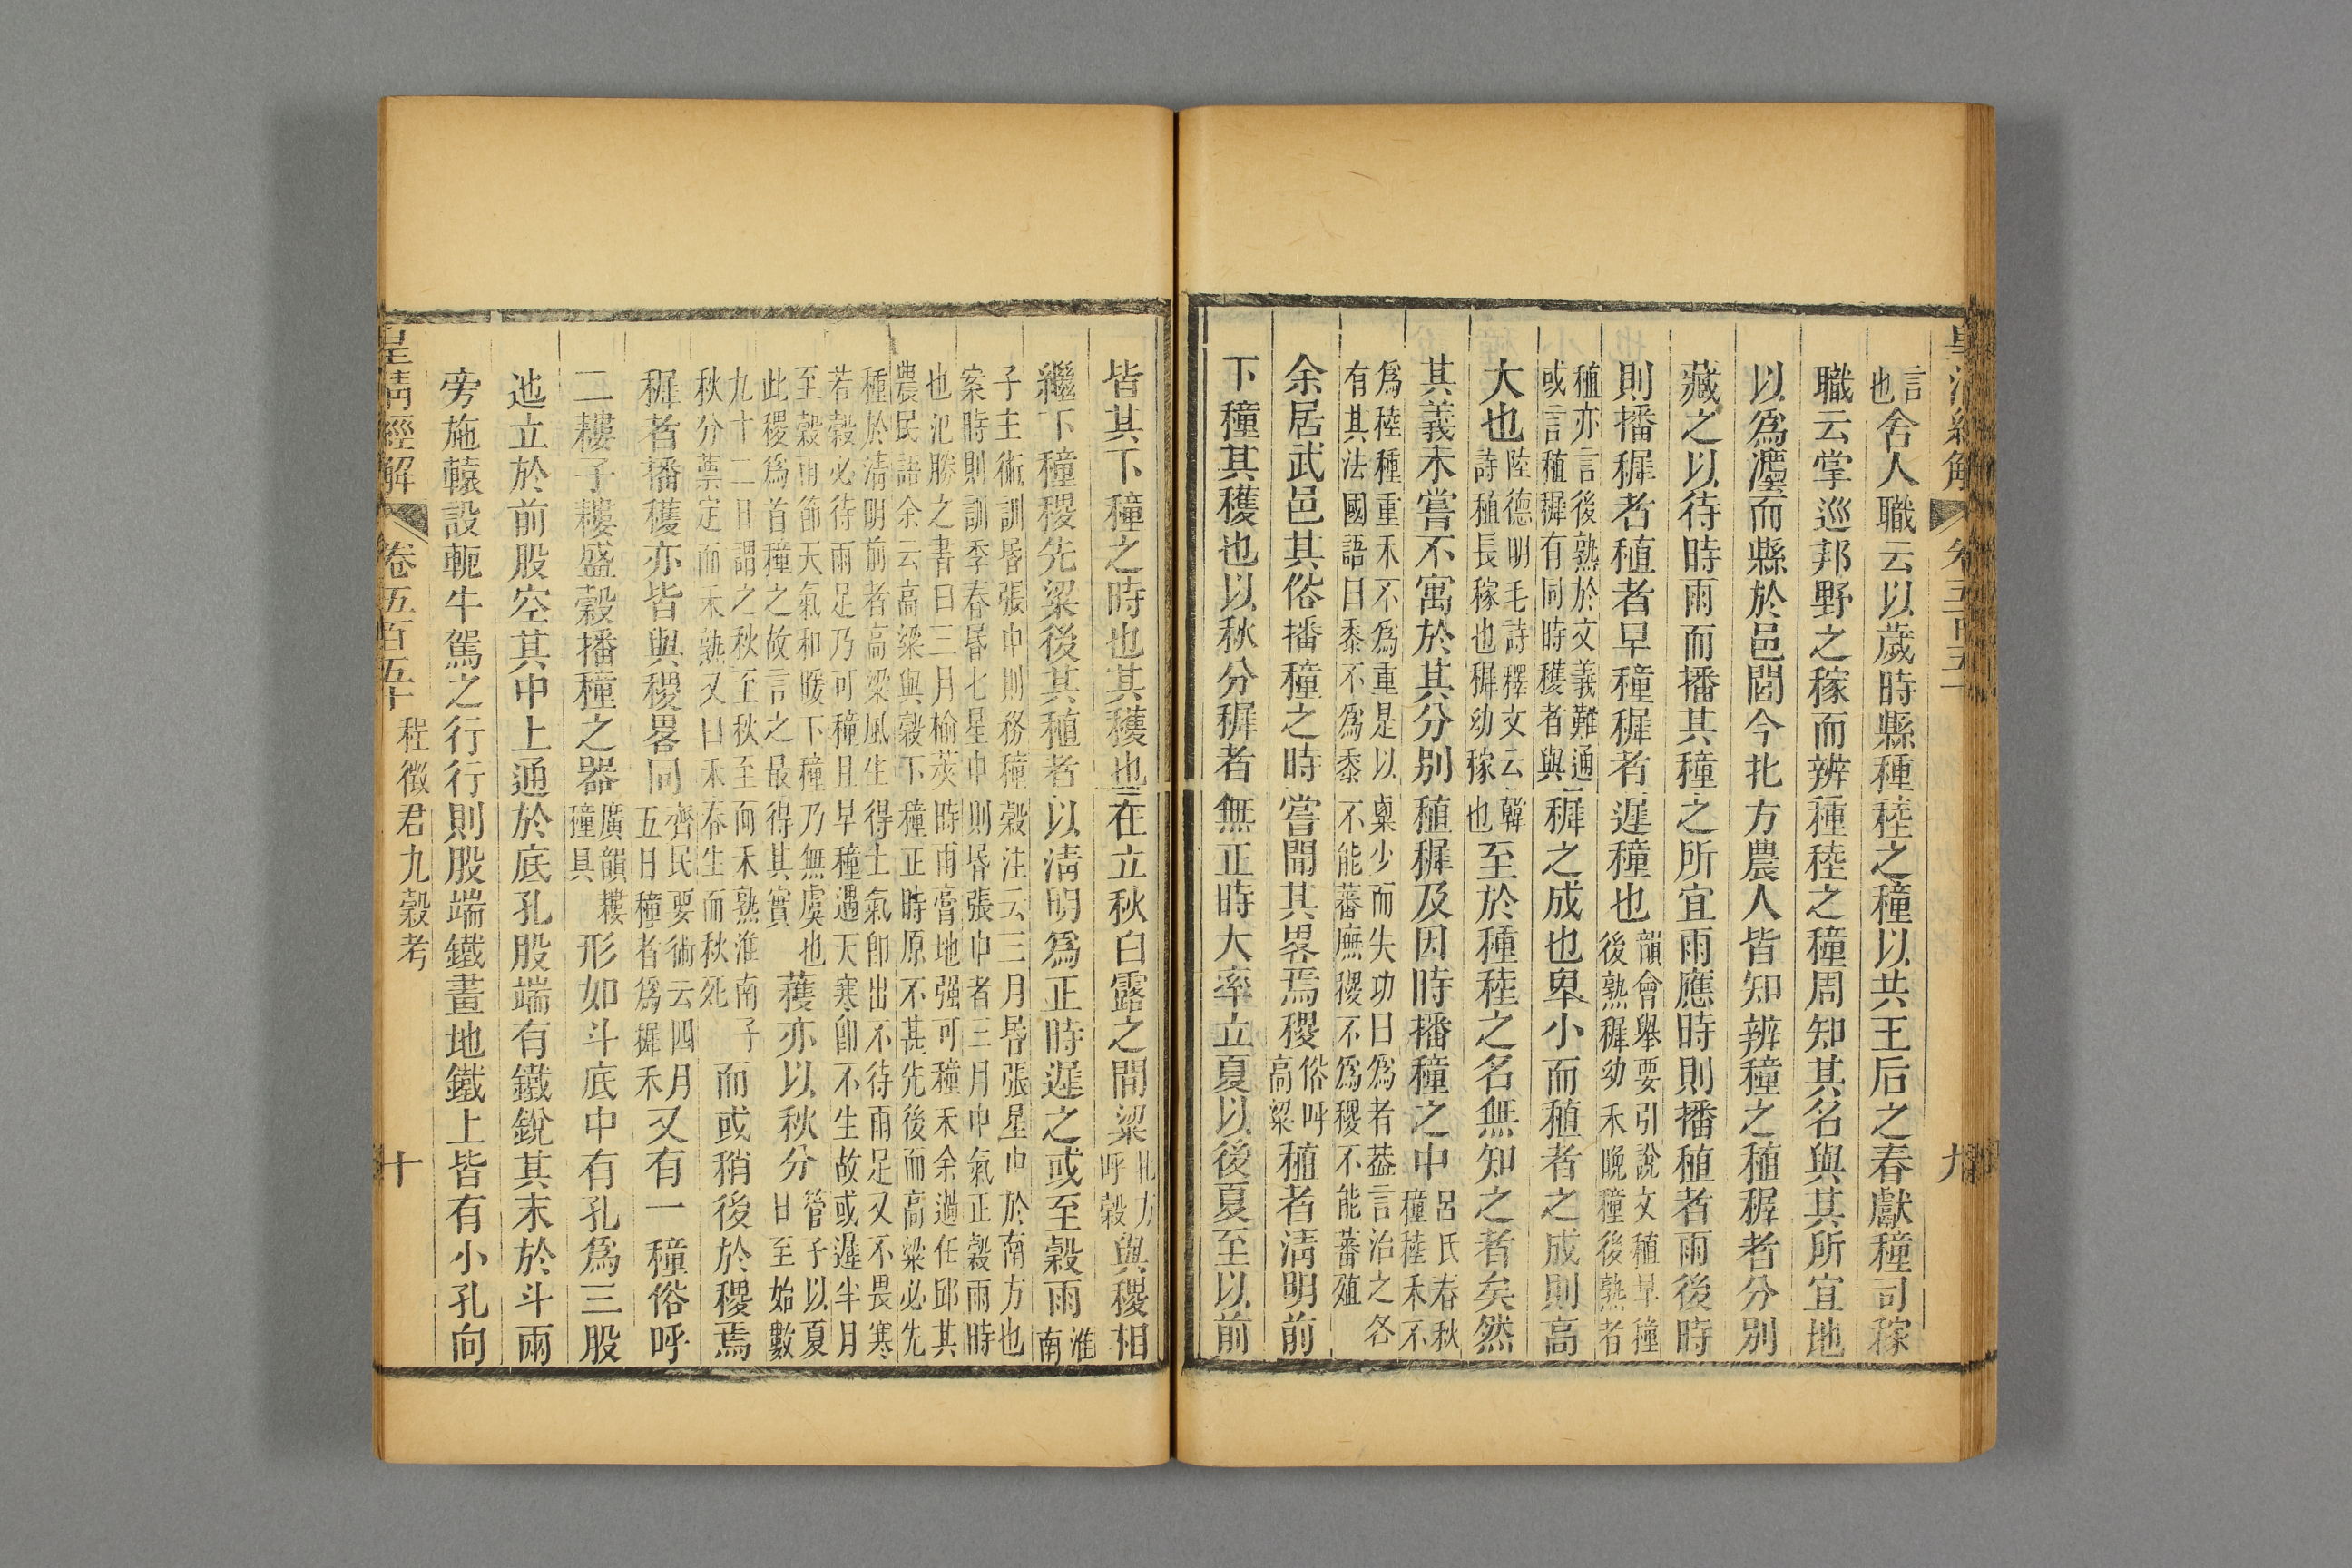 言也舍人職云以歲時縣種稑之穜以共王后之春獻穜司稼
職云掌巡邦野之稼而辨種稑之穜周知其名與其所宜地
以爲灋而縣於邑閭今北方農人皆知辨穜之稙稺者分別
藏之以待時雨而播其穜之所宜雨應時則播稙者雨後時
則播稺者稙者早穜稺者遲穜也韻會舉要引說文稙早穜後熟稺幼禾晚穜後熟者
稙亦言後熟於文義難通或言稙稺有同時穫者與稺之成也卑小而稙者之成則高
大也陸德明毛詩釋文云韓詩稙長稼也稺幼稼也至於種稑之名無知之者矣然
其義未嘗不寓於其分別稙稺及因時播穜之中呂氏春秋穜稑禾不
爲稑種重禾不爲重是以粟少而失功曰爲者葢言治之各有其法國語曰黍不爲黍不能蕃廡稷不爲稷不能蕃殖
余居武邑其俗播穜之時嘗聞其畧焉稷俗呼高粱稙者淸明前
下穜其穫也以秋分稺者無正時大率立夏以後夏至以前
皆其下穜之時也其穫也在立秋白露之間粱北方呼穀與稷相
繼下穜稷先粱後其稙者以淸明爲正時遲之或至穀雨淮南
子主術訓昏張中則務種穀注云三月昏張星中於南方也案時則訓季春昏七星中則昏張中者三月中氣正穀雨時
也氾勝之書曰三月榆莢時雨膏地强可種禾余過任邱其農民語余云高粱與穀下種正時原不甚先後而高粱必先
種於淸明前者高粱風生得土氣卽出不待雨足又不畏寒若穀必待雨足乃可種且早種遇天寒卽不生故或遲半月
至穀雨節天氣和暖下種乃無虞也此稷爲首種之故言之最得其實穫亦以秋分管子以夏日至始數
九十二日謂之秋至秋至而禾熟淮南子秋分蔈定而禾熟又曰禾春生而秋死而或稍後於稷焉
稺者播穫亦皆與稷畧同齊民要術云四月五日種者爲稺禾又有一穜俗呼
二耬子耬盛穀播穜之器廣韻耬種具形如斗底中有孔爲三股
迆立於前股空其中上通於底孔股端有鐵銳其末於斗兩
旁施轅設軛牛駕之行行則股端鐵畫地鐵上皆有小孔向
皇淸經解 卷五百五十 程徵君九穀考 十